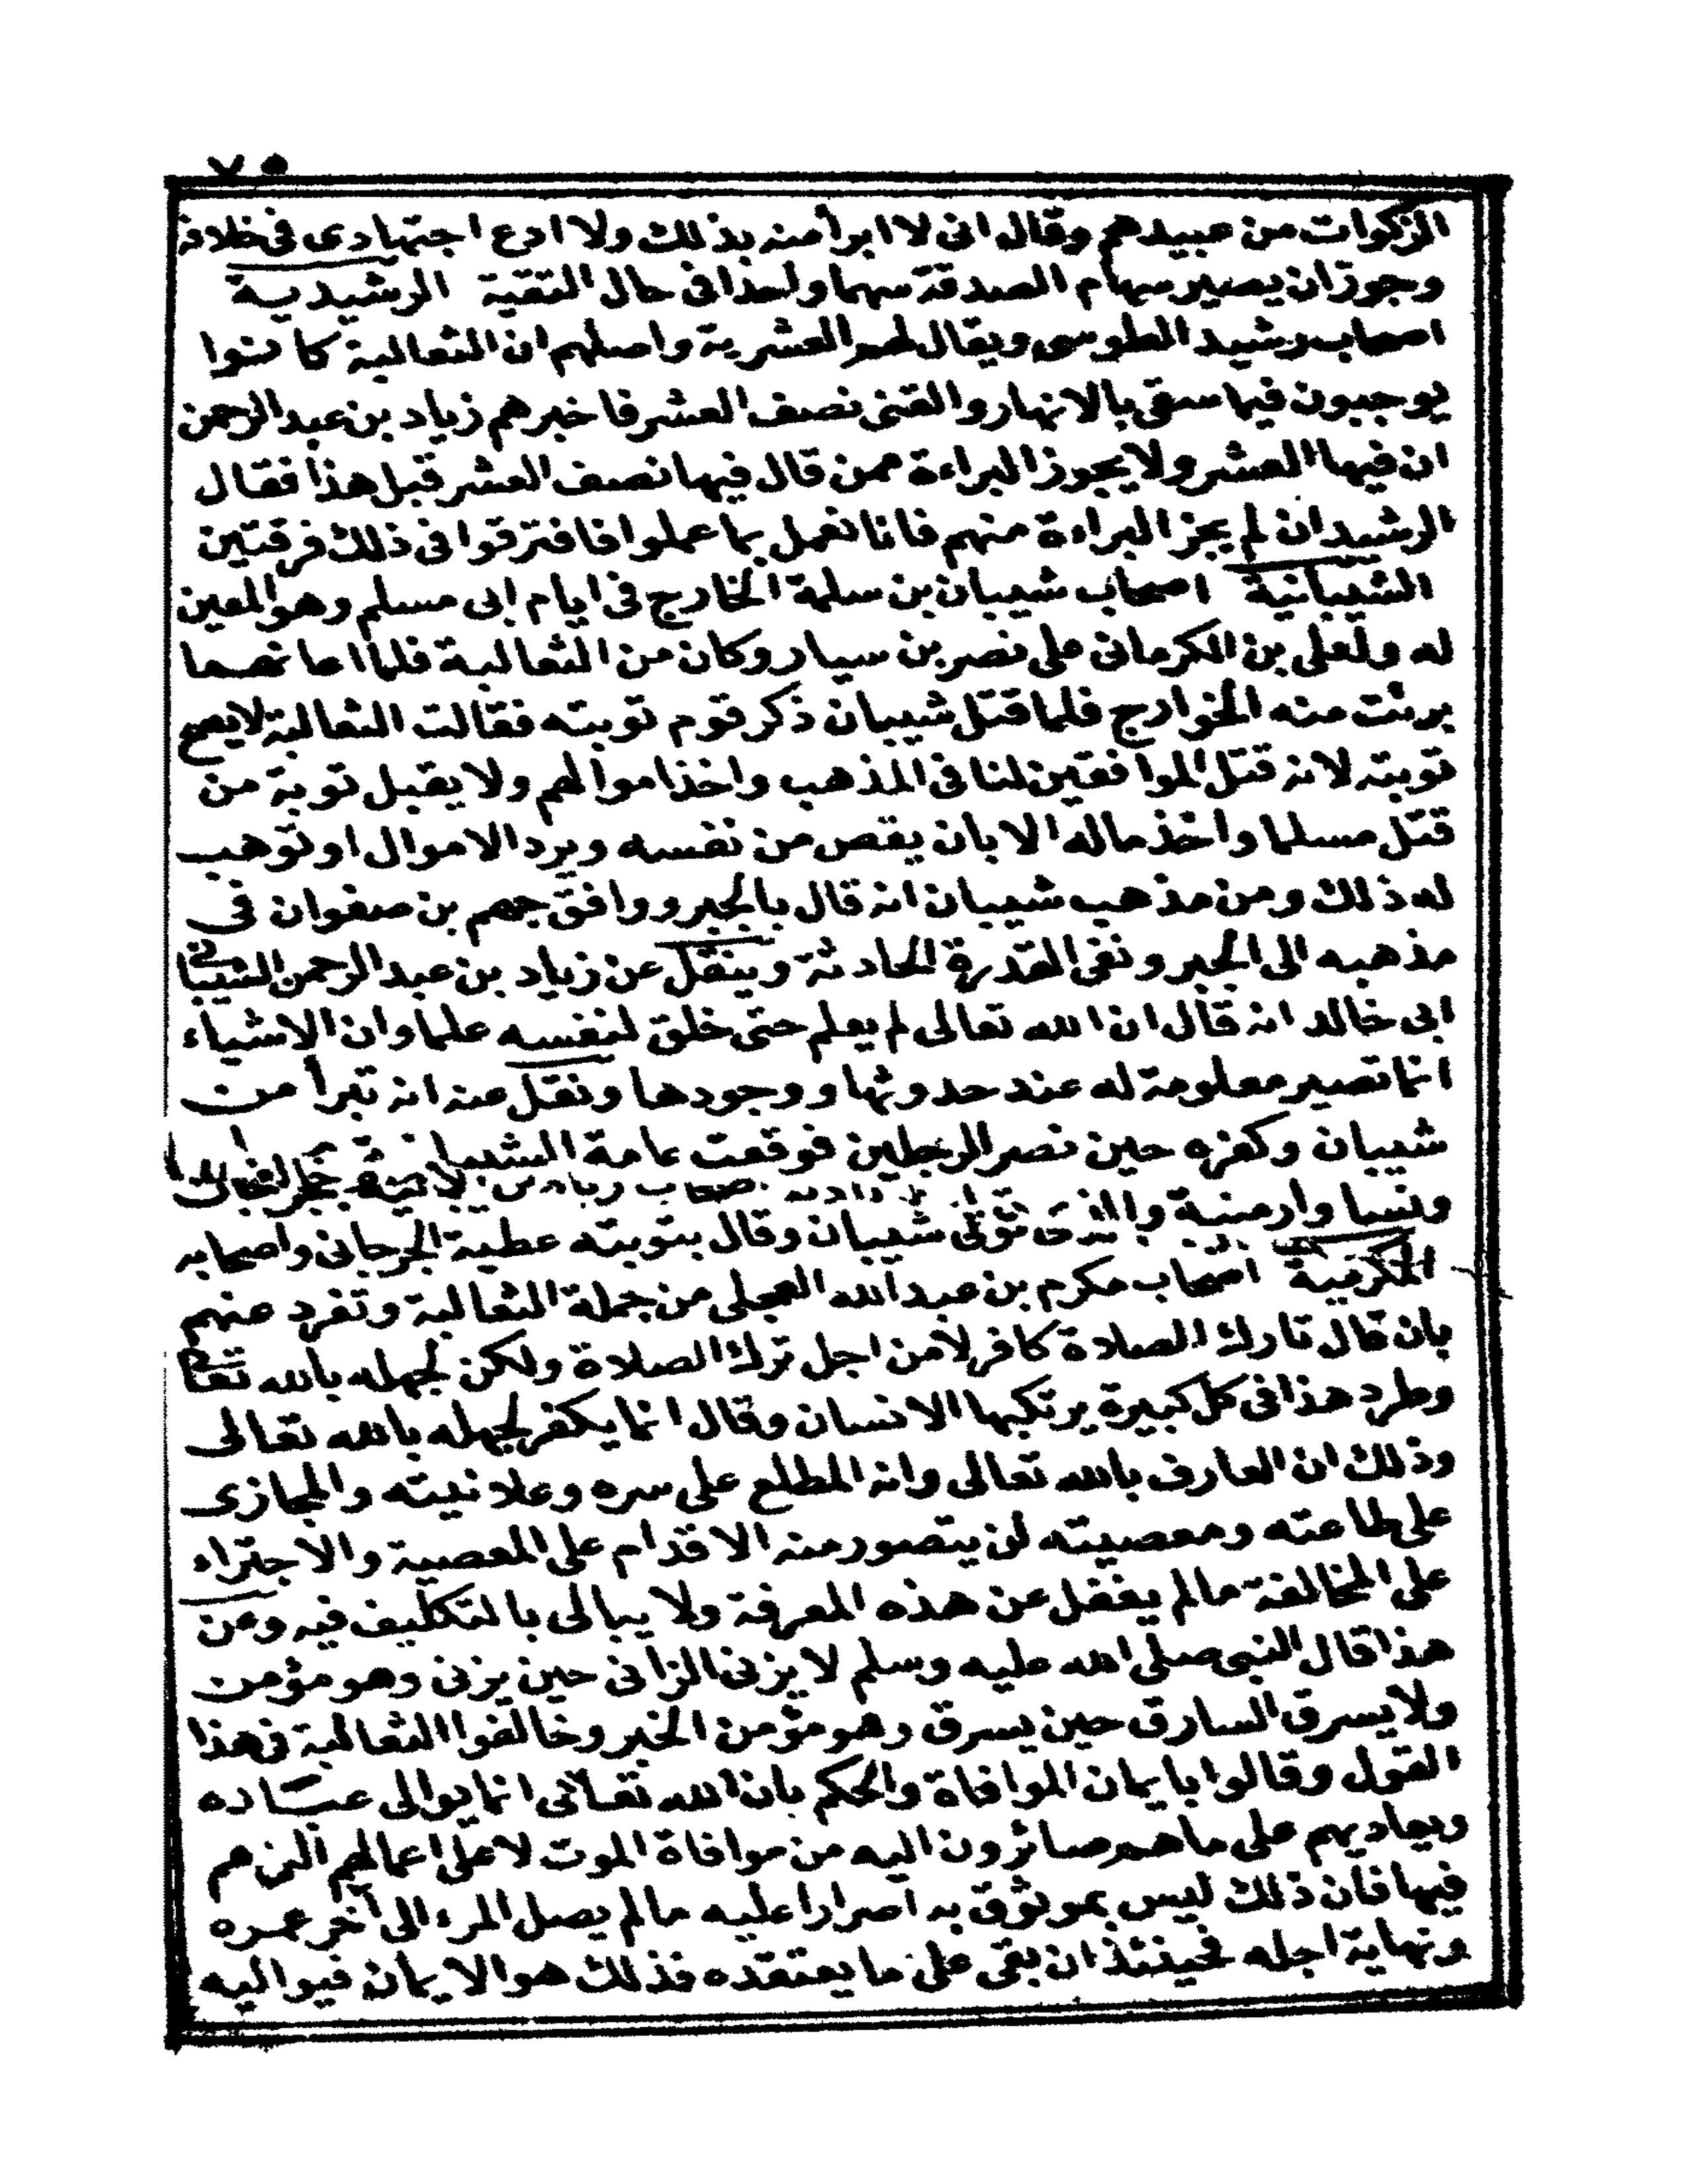 ٧٥
الزكوات من عبيدهم وقال انى لا ابرأ منه بذلك ولا ادع اجتهادى فى خلافه
وجوز ان يصير سهام الصدقة سهما واحدا فى حال التقية الرشيدية
اصحاب رشيد الطوسى ويقال لهم العشرية واصلهم ان الثعالبة كانوا
يوجبون فيما سقى بالانهار والقنى نصف العشر فاخبرهم زياد بن عبد الرحمن
ان فيها العشر ولا يجوز البراءة ممن قال فيها نصف العشر قبل هذا فقال
الرشيد ان لم يجز البراءة منهم فانا نعمل بما عملوا فافترقوا فى ذلك فرقتين
الشيبانية اصحاب شيبان بن سلمة الخارج فى ايام ابى مسلم وهو المعين
له ولعلى بن الكرمانى على نصر بن سيار وكان من الثعالبة فلما اعانهما
برئت منه الخوارج فلما قتل شيبان ذكر قوم توبته فقالت الثعالبة لا يصح
توبته لانه قتل الموافقين لنا فى المذهب واخذ اموالهم ولا يقبل توبة من
قتل مسلما واخذ ماله الا بان يقص من نفسه ويرد الاموال او توهب
له ذلك ومن مذهب شيبان انه قال بالجبر ووافق جهم بن صفوان فى
مذهبه الى الجبر ونفى القدرة الحادثة وينقل عن زياد بن عبد الرحمن الشيبانى
ابى خالد انه قال ان الله تعالى لم يعلم حتى خلق لنفسه علما وان الاشياء
انما تصير معلومة له عند حدوثها ووجودها ونقل عنه انه تبرأ من
شيبان وكفره حين نصر الرجلين فوقعت عامة الشيبانية
ونسا وارمنية والذى تولى شيبان وقال بتوبته عطية الجرجانى واصحابه
المكرمية اصحاب مكرم بن عبد الله العجلى من جملة الثعالبة وتفرد عنهم
بان قال تارك الصلاة كافر لا من اجل ترك الصلاة ولكن لجهله بالله تعالى
وطرد هذا فى كل كبيرة يرتكبها الانسان وقال انما يكفر لجهله بالله تعالى
وذلك ان العارف بالله تعالى وانه المطلع على سره وعلانيته والمجازى
على طاعته ومعصيته لن يتصور منه الاقدام على المعصية والاجتراء
على المخالفة ما لم يغفل عن هذه المعرفة ولا يبالى بالتكليف فيه وعن
هذا قال النبى صلى الله عليه وسلم لا يزنى الزانى حين يزنى وهو مؤمن
ولا يسرق السارق حين يسرق وهو مؤمن الخبر وخالفوا الثعالبة فى هذا
القول وقالوا بايمان الموافاة والحكم بان الله تعالى انما يوالى عباده
ويعاديهم على ما هم صائرون اليه من موافاة الموت لا على اعمالهم التى هم
فيها فان ذلك ليس بموثوق به اصرارا عليه ما لم يصل المرء الى آخر عمره
ونهاية اجله فحينئذ ان بقى على ما يعتقده فذلك هو الايمان فيواليه